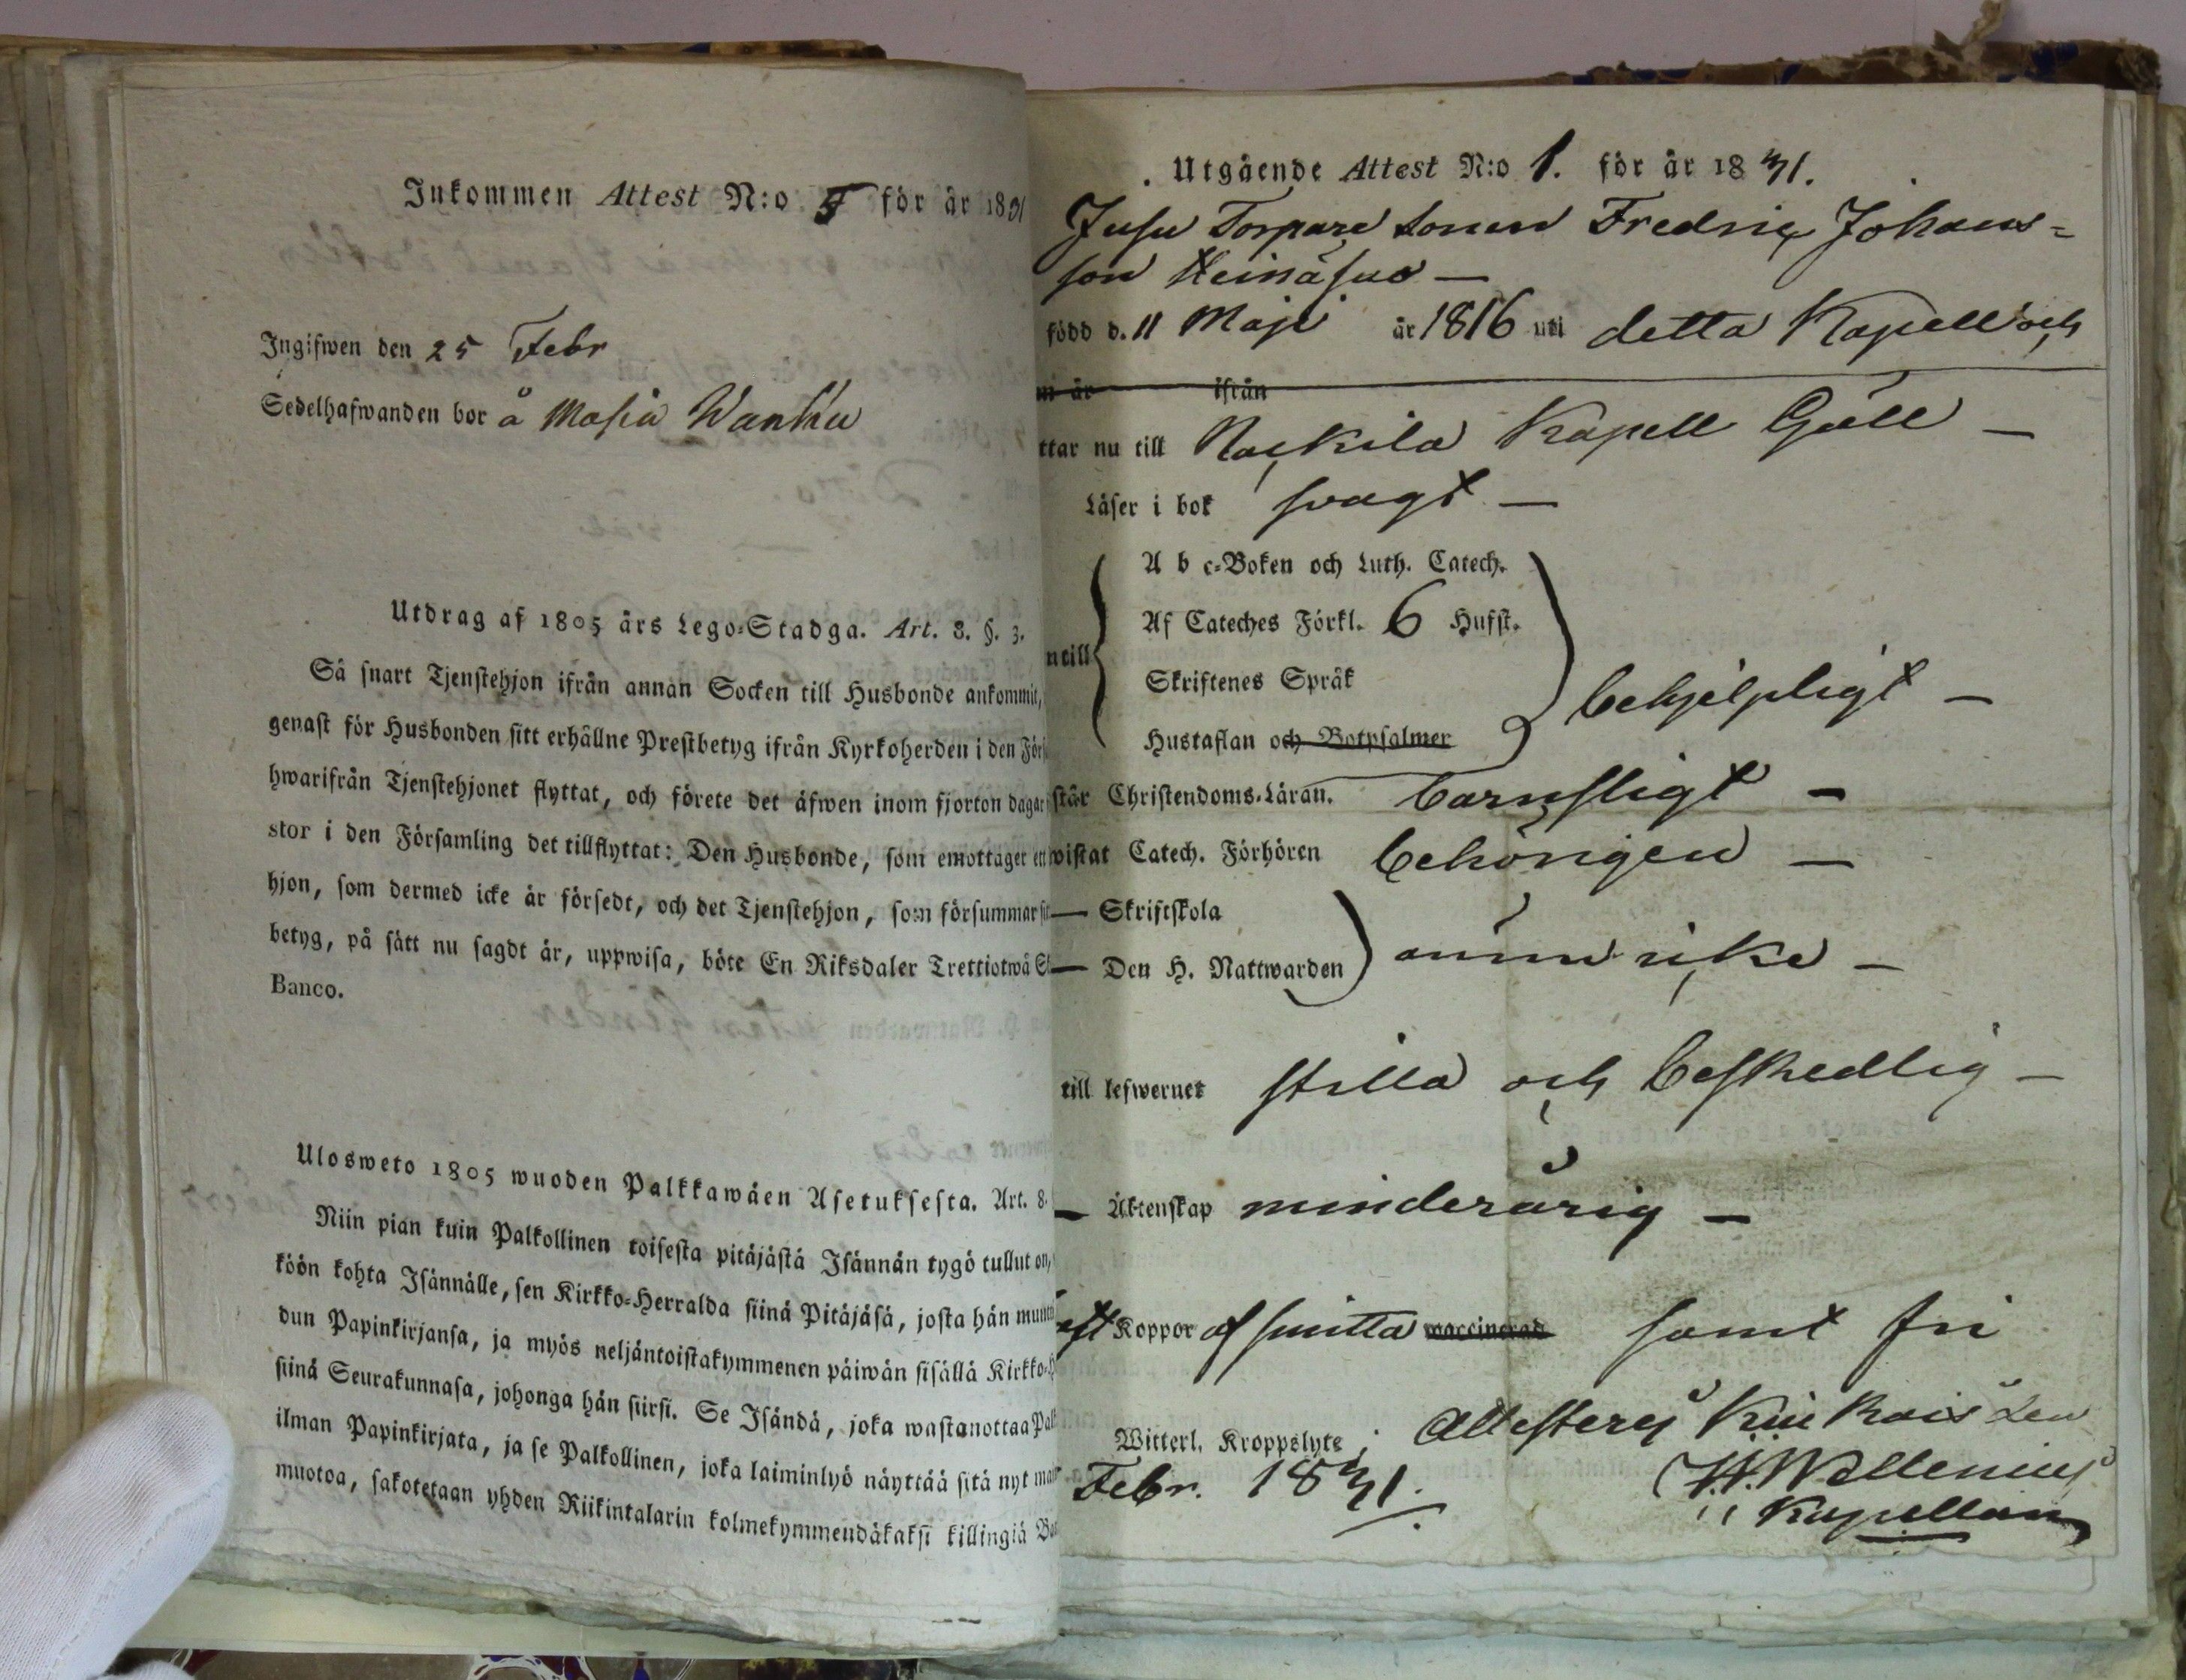 Inkommen Attest N:o 5 för år 1831
Ingifwen den 25 Febr
Sedelhafwanden bor å Masia Wanka
Utdrag af 1805 års Lego-Stadga. Art. 8. §. 3.
Så snart Tjenstehjon ifrån annan Socken till Husbonde ankommit,
genast för Husbonden sitt erhållne Prestbetyg ifrån Kyrkoherden i den För
hwarifrån Tjenstehjonet flyttat, och förete det äfwen inom fjorton dagar
stor i den Församling det tillflyttat: Den Husbonde, som emottager ett
hjon, som dermed icke är försedt, och det Tjenstehjon, som försummar sit
betyg, på sätt nu sagdt är, uppwisa, böte En Riksdaler Trettiotwå S
Banco.
Ulosweto 1805 wuoden Palkkawäen Asetuksesta. Art. 8.
Niin pian kuin Palkollinen toisesta pitäjästä Isännän tygö tullut on,
köön kohta Isännälle, sen Kirkko-Herralda siinä Pitäjäsä, josta hän muut
dun Papinkirjansa, ja myös neljäntoistakymmenen päiwän sisällä Kirkko-H
siinä Seurakunnasa, johonga hän siirsi. Se Isändä, joka wastanottaa Pal
ilman Papinkirjata, ja se Palkollinen, joka laiminlyö näyttää sitä nyt ma
muotoa, sakotetaan yhden Riikintalarin kolmekymmendäkaksi killingiä Ba
Utgående Attest N:o 1. för år 1831.
Jusu Torpare Sonen Fredric Johans=
son Heinäsuo —
född d. 11 Maji år 1816 uti detta Kapell och
m år ifrån
ttar nu till Nackila Kapell Gäll —
Läser i bok svagt —
A b c-Boken och Luth. Catech.
Af Cateches Förkl. 6 Hufst.
n till
Skriftenes Språk
behjelpligt —
Hustaflan och Botpsalmer
står Christendoms-Läran. barnsligt —
wistat Catech. Förhören behörigen —
— Skriftskola
— Den H. Nattwarden ännu icke —
till lefwernet stilla och beskedlig —
— Äktenskap minderårig —
Koppor af smitta vaccinerad samt fri
Witterl. Kroppslyte; Attesterej Kiukais den
Febr. 1831. Wellenius
Kapellan